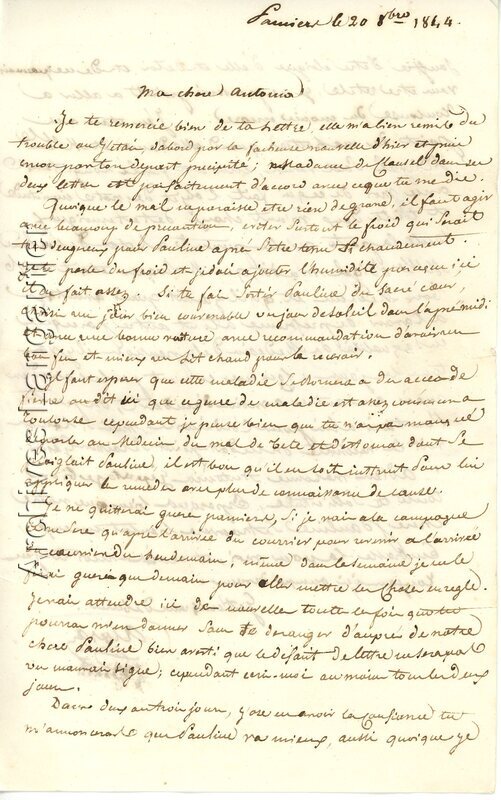 Pamiers le 20 8bre 1844.
Ma chere Antonia
Je te remercie bien de ta lettre, elle m'a bien remis du
trouble ou j'etais dabord par la facheuse nouvelle d'hier et puis
encore par ton depart precipité; Madame de Clausel dans ses
deux lettres est parfaitement d'accord avec ce que tu me dis.
Quoique le mal ne paraisse etre rien de grave, il faut agir
avec beaucoup de precaution, eviter surtout le froid qui serait
dangereux pour Pauline après s'etre tenu si chaudement.
Je te parle du froid et je dois ajouter l'humidité parce qu'ici
Si tu fais sortir Pauline du Sacré coeur,
choisi un jour bien convenable un jour de soleil dans l'après midi
dans une bonne voiture avec recommandation d'avoir un
bon feu et mieux un lit chaud pour la recevoir.
Il faut esperer que cette maladie se bornera a des acces de
fievre on dit ici que ce genre de maladie est assez commun a
toulouse cependant je pense bien que tu n'as pas manqué
de parler au Medecin du mal de tete et d'estomac dont se
plaignait Pauline, il est bon qu'il en soit instruit pour lui
appliquer le remede avec plus de connaissance de cause.
Je ne quitterai guere pamiers, si je vais a la campagne
ce ne sera qu'après l'arrivée du courrier pour revenir a l'arrivée
du courrier du lendemain, même dans la semaine je ne le
ferai guere que demain pour aller mettre les choses en regle.
Je vais attendre ici de nouvelles toutes les fois que tu
pourras m'en donner sans te deranger d'aupres de notre
chere Pauline bien averti que le défaut de lettre ne sera pas
un mauvais signe; cependant ecris-moi au moins tous les deux
jours.
Dans deux ou trois jours, j'ose en avoir la confiance tu
m'annonceras que Pauline va mieux, aussi quoique je
Archives Langarité